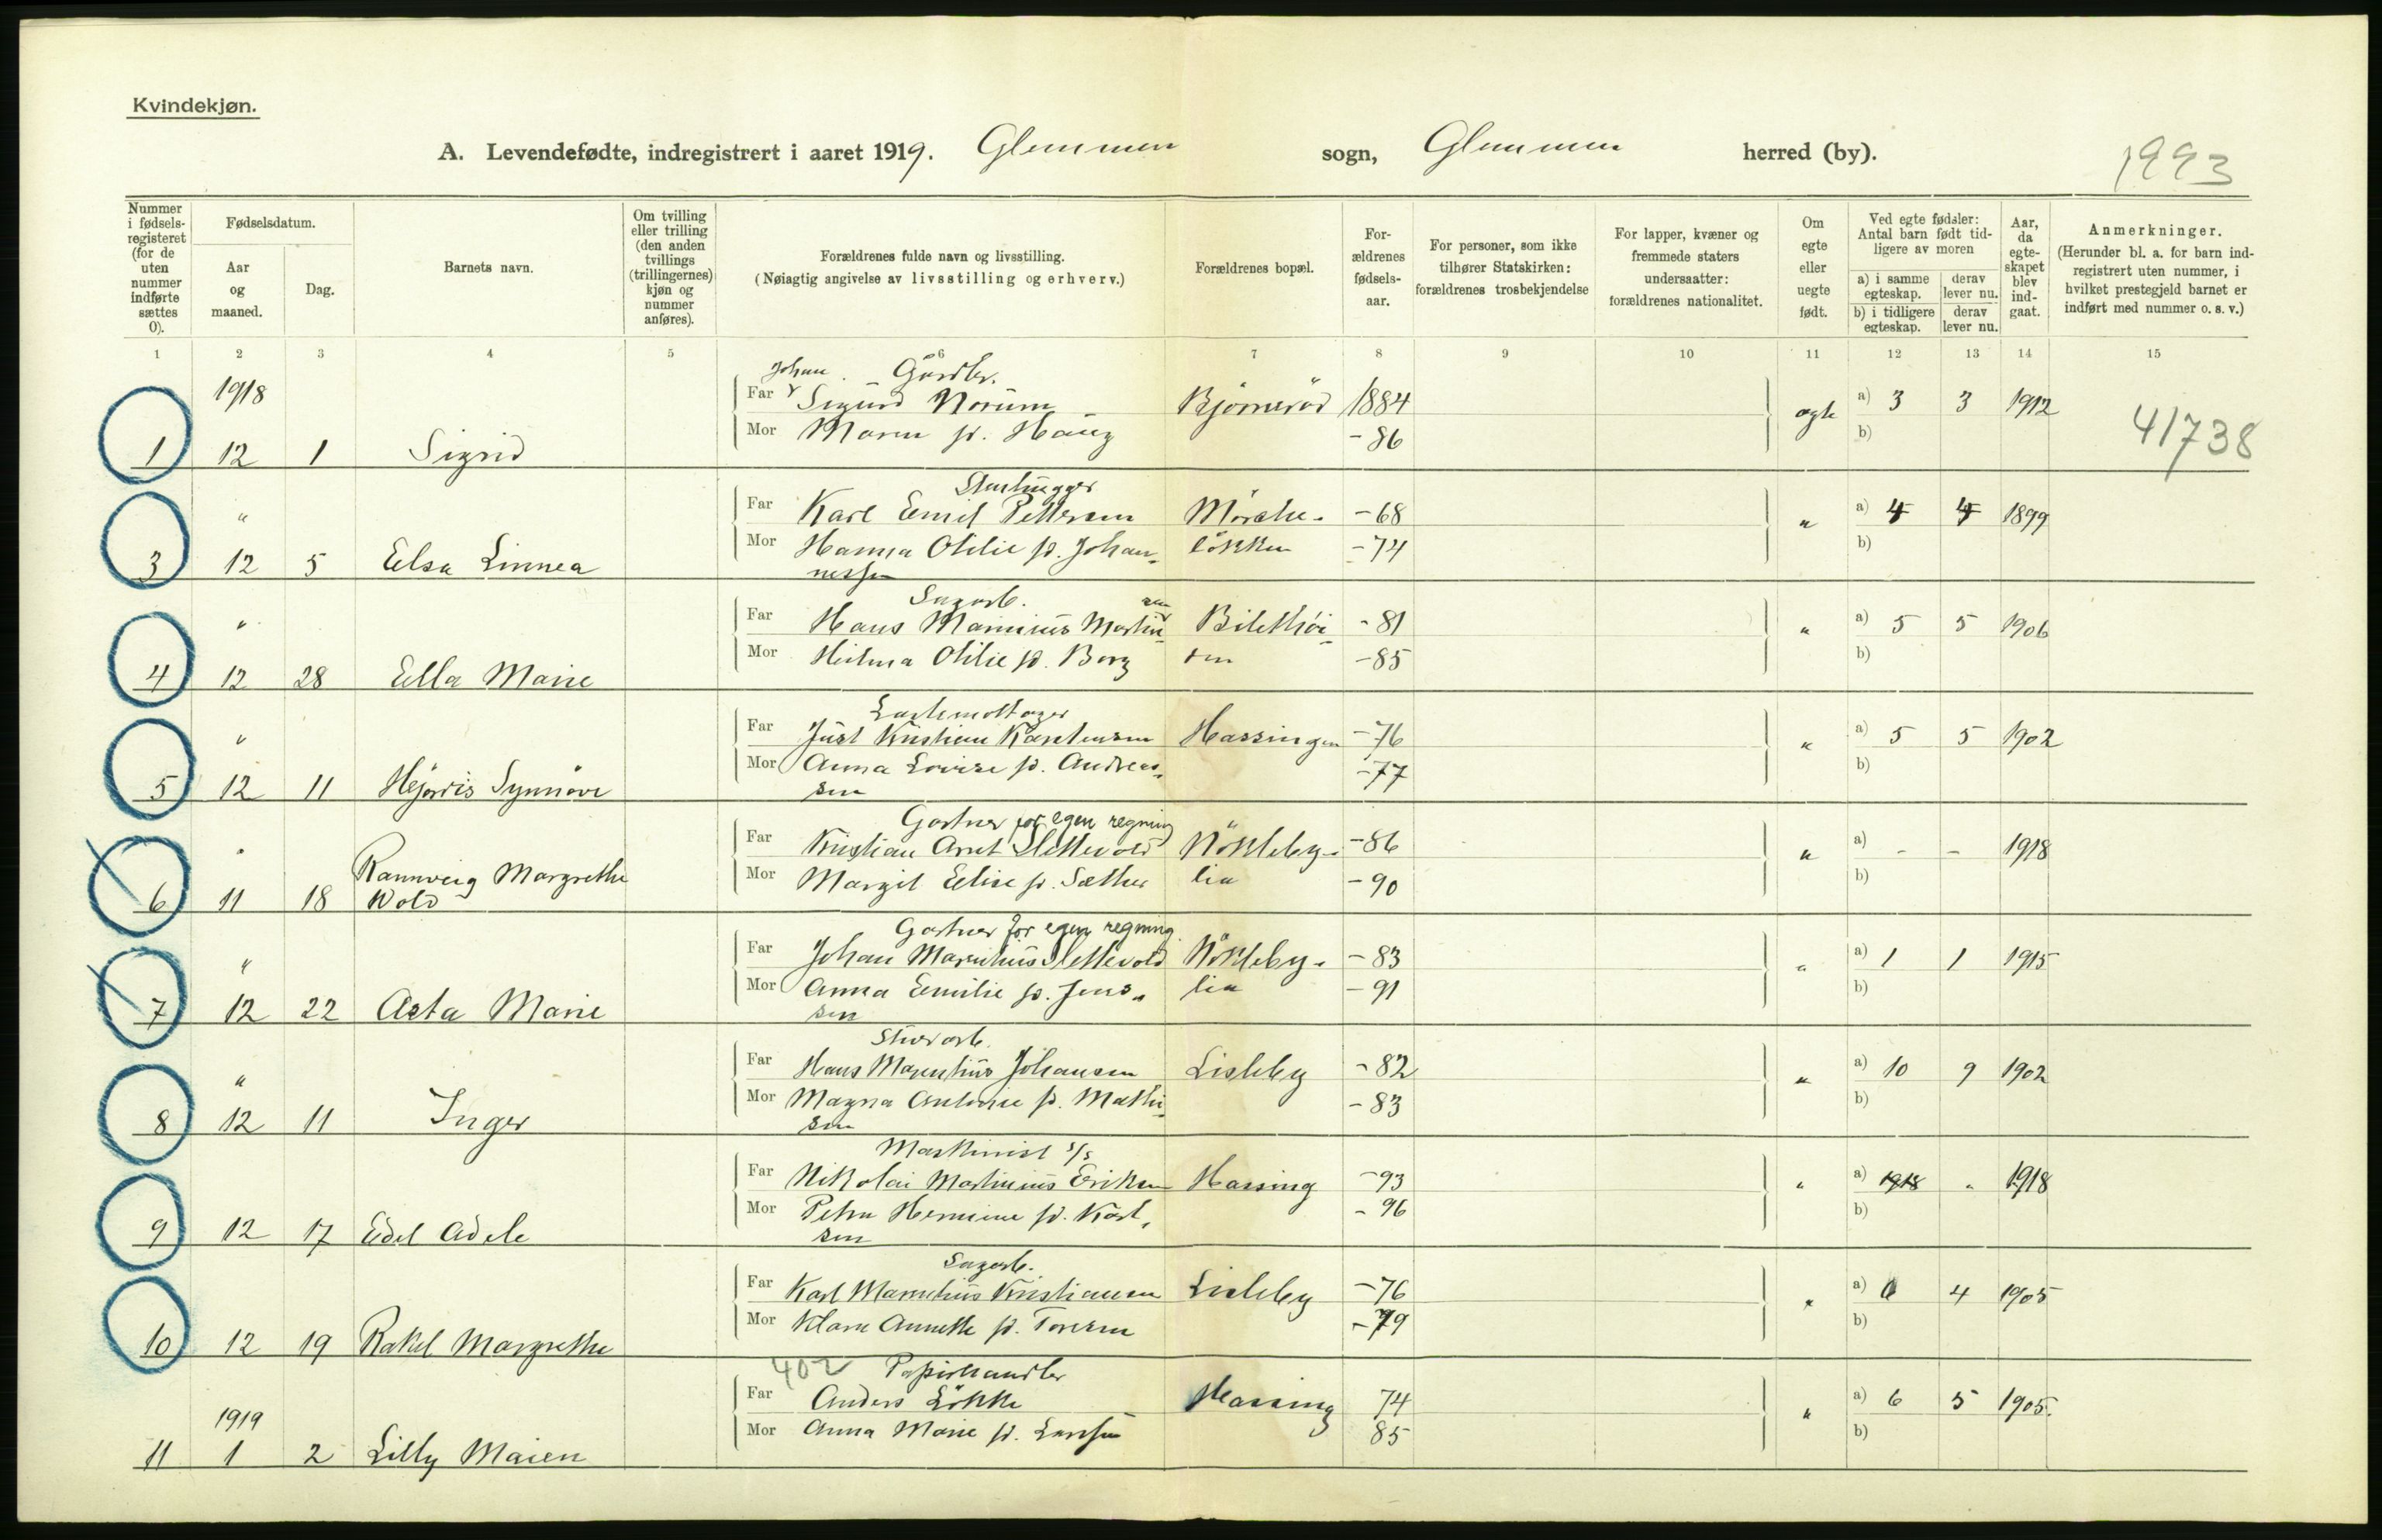 Kvindekjøn.
A. Levendefødte, indregistrert i aaret 1919. Glemmen sogn, Glemmen herred (by). 1993
Nummer i fødsels-registeret (for de uten nummer indførte sættes 0).
Fødselsdatum.
Aar og maaned.
Dag.
Barnets navn.
Om tvilling eller trilling (den anden tvillings (trillingernes) kjøn og nummer anføres).
Forældrenes fulde navn og livsstilling.
(Nøiagtig angivelse av livsstilling og erhverv.)
Forældrenes bopæl.
For-ældrenes fødsels-aar.
For personer, som ikke tilhører Statskirken: forældrenes trosbekjendelse
For lapper, kvæner og fremmede staters undersaatter: forældrenes nationalitet.
Om egte eller uegte født.
Ved egte fødsler: Antal barn født tid-ligere av moren
a) i samme egteskap. derav lever nu.
b) i tidligere egteskap. derav lever nu.
Aar, da egte-skapet blev ind-gaat.
Anmerkninger.
(Herunder bl. a. for barn ind-registrert uten nummer, i hvilket prestegjeld barnet er indført med nummer o. s. v.)
1 2 3 4 5 6 7 8 9 10 11 12 13 14 15
1918 Johan Gårdbr.
Far Sigurd Norum Bjørnerød 1884 egte a) 3 3 1912
Mor Maren f. Haug - 86 b) 41738
1 12 1 Sigrid
Stenhugger
" Far Karl Emil Pettersen Mørche- - 68 " a) 4 4 1899
Mor Hanna Otilie f. Johan- løkken - 74 b)
3 12 5 Elsa Linnea nessen
Sagarb. sen
" Far Hans Marinius Martin Biletthöi - 81 " a) 5 5 1906
Mor Hilma Otilie f. Borg - 85 b)
4 12 28 Ella Marie
Lastemottager
" Far Just Kristian Karstensen Hassingen - 76 " a) 5 5 1902
Mor Anna Lovise f. Andreas- - 77 b)
5 12 11 Hjørdis Synnøve sen
Gartner for egen regning
" Far Kristian Arnt Slettevold Nökleby- - 86 " a) - - 1918
Rannveig Margrethe Mor Margit Elise f. Sæther lia - 90 b)
6 11 18 Wold
Gartner for egen regning
" Far Johan Marenius Slettevold Nökleby- - 83 " a) 1 1 1915
Mor Anna Emilie f. Jens- lia - 91 b)
7 12 22 Asta Marie sen
Stuerarb.
" Far Hans Marentius Johansen Lisleby - 82 " a) 10 9 1902
Mor Magna Antonie f. Mathi- - 83 b)
8 12 11 Inger sen
Maskinist s/s
Far Nikolai Martinius Eriksen Hassing - 93 " a) 1918 " 1918
Mor Petra Hermine f. Karl- - 96 b)
9 12 17 Edel Adele sen
Sagarb.
Far Karl Marentius Kristiansen Lisleby - 76 " a) 6 4 1905
Mor Klara Annette f. Toresen - 79 b)
10 12 19 Rakel Margrethe
402 Papirhandler
1919 Far Anders Løkke Hassing 74 " a) 6 5 1905.
Mor Anna Marie f. Larsen 85 b)
11 1 2 Lilly Maien